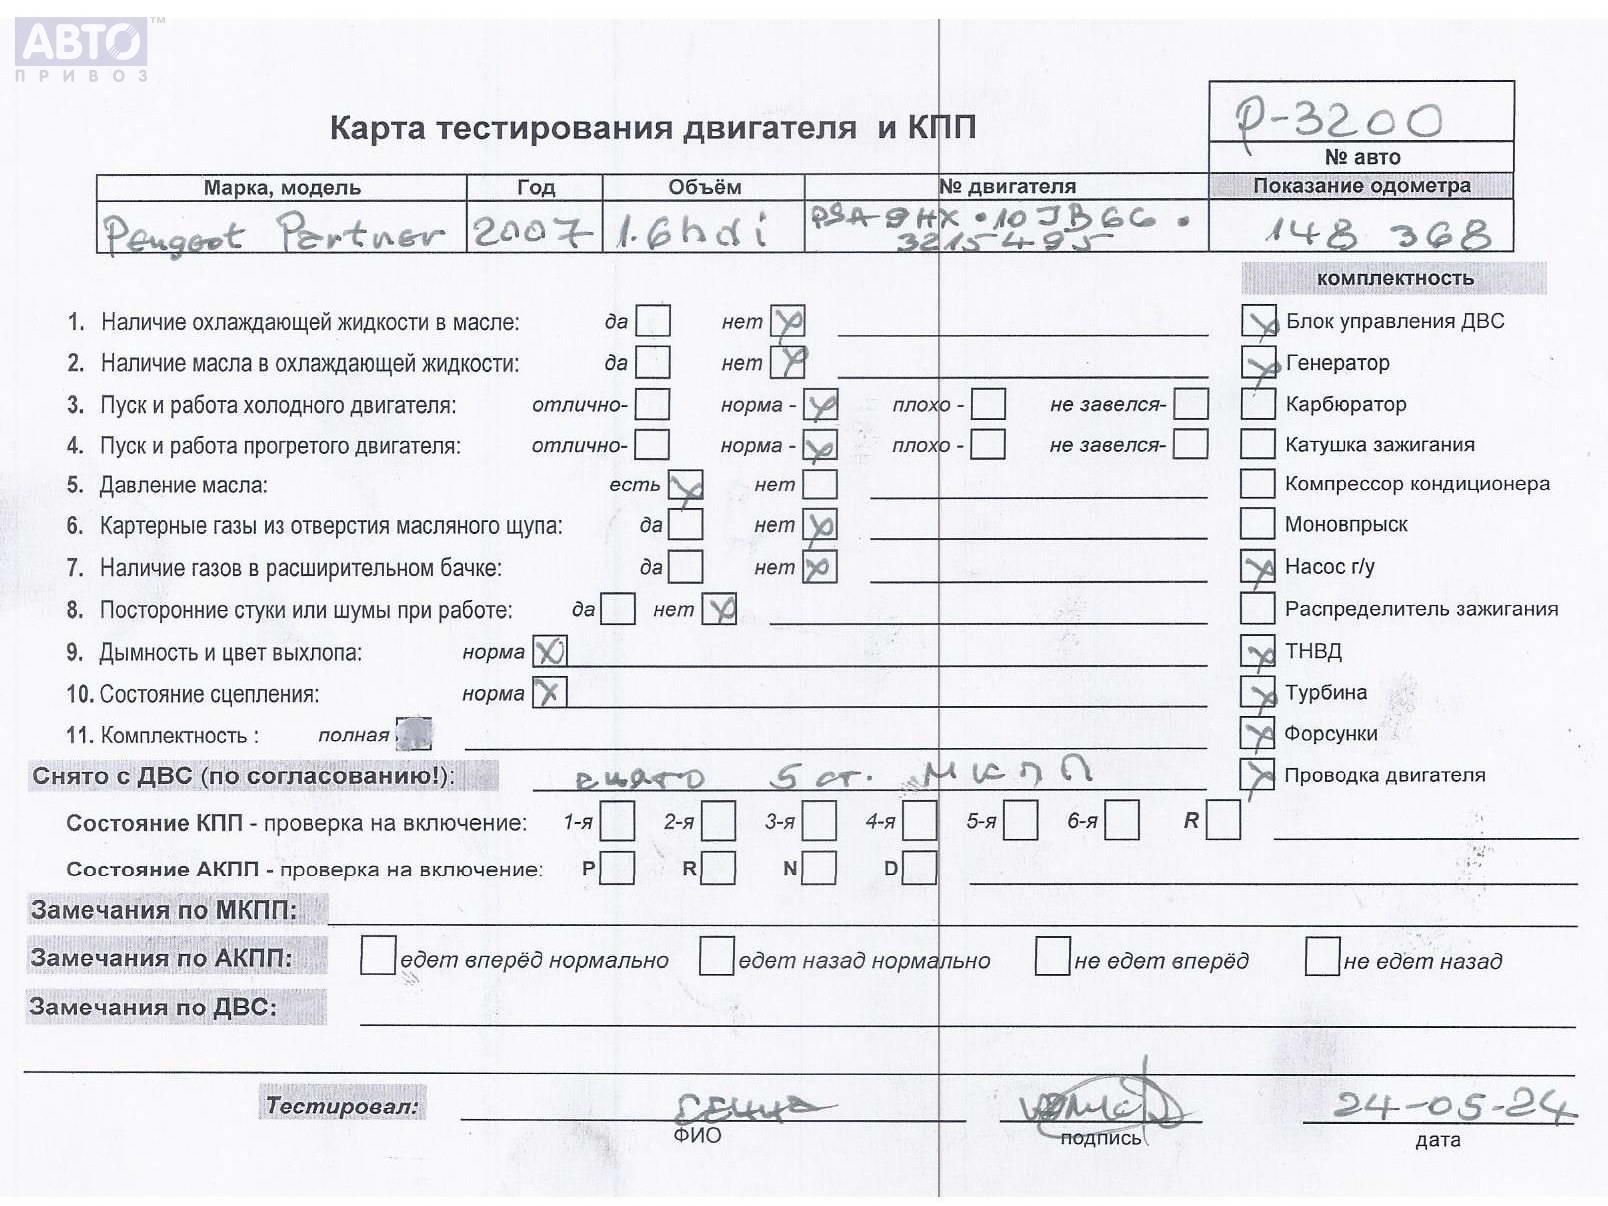 АВТО™
ПРИВОЗ
Р-3200
Карта тестирования двигателя и КПП
№ авто
Марка, модель Год Объём № двигателя Показание одометра
Peugeot Partner 2007 1.6hdi PSA 9HX • 10JB66 • 148 368
3215495
комплектность
1. Наличие охлаждающей жидкости в масле: да нет Блок управления ДВС
2. Наличие масла в охлаждающей жидкости: да нет Генератор
3. Пуск и работа холодного двигателя: отлично- норма - плохо - не завелся- Карбюратор
4. Пуск и работа прогретого двигателя: отлично- норма - плохо - не завелся- Катушка зажигания
5. Давление масла: есть нет Компрессор кондиционера
6. Картерные газы из отверстия масляного щупа: да нет Моновпрыск
7. Наличие газов в расширительном бачке: да нет Насос г/у
8. Посторонние стуки или шумы при работе: да нет Распределитель зажигания
9. Дымность и цвет выхлопа: норма ТНВД
10. Состояние сцепления: норма Турбина
11. Комплектность : полная Форсунки
Снято с ДВС (по согласованию!): снято 5 ст. МКПП Проводка двигателя
Состояние КПП - проверка на включение: 1-я 2-я 3-я 4-я 5-я 6-я R
Состояние АКПП - проверка на включение: P R N D
Замечания по МКПП:
Замечания по АКПП: едет вперёд нормально едет назад нормально не едет вперёд не едет назад
Замечания по ДВС:
Тестировал: 24-05-24
ФИО подпись дата